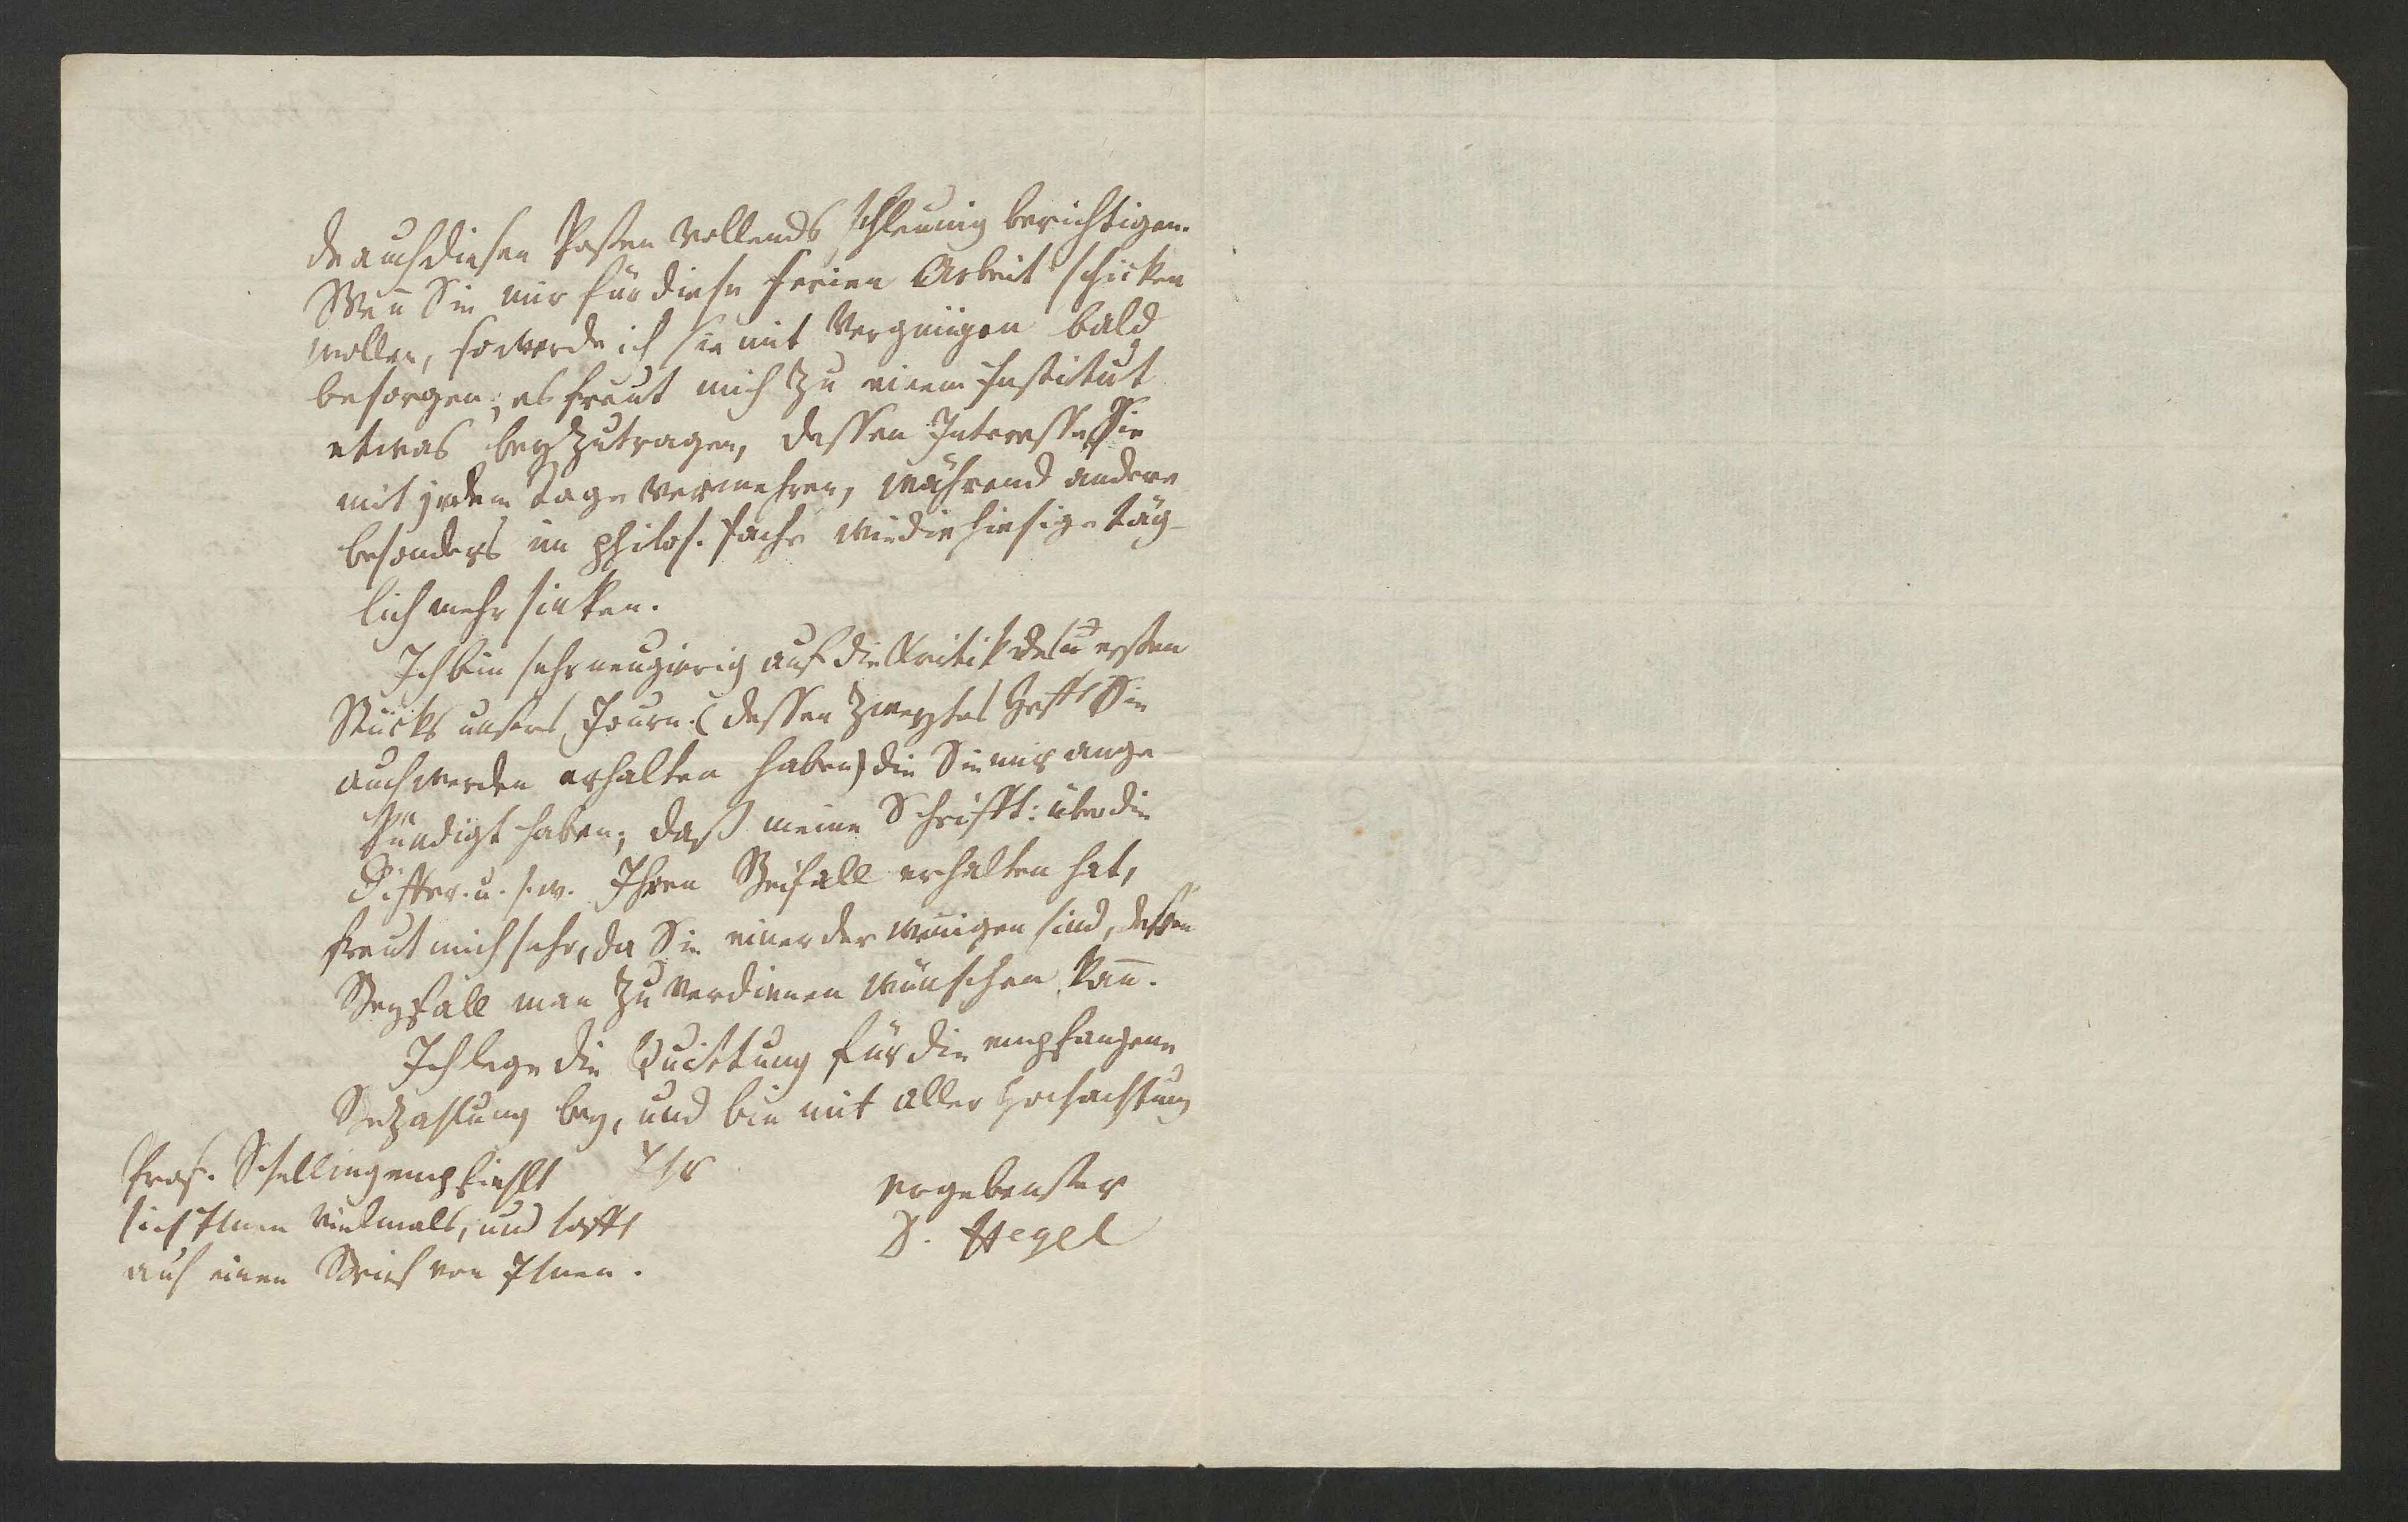 de auch diesen Posten vollends schleunig berichtigen.
Weñ Sie mir für diese Ferien Arbeit schicken
wollen, so werde ich sie mit Vergnügen bald
besorgen; es freut mich zu einem Institut
etwas beyzutragen, dessen Interesse Sie
mit jedem Tage vermehren, während andere
besonders im philos. Fache wie die hiesige täg-
lich mehr sinken.
Ich bin sehr neugierig auf die Kritik des ersten
Stücks unsers Journ. (dessen zweytes Heft Sie
auch werden erhalten haben) die Sie mir ange-
kündigt haben; daß meine Schrifft: über die
Differ. u. s. w. Ihren Beifall erhalten hat,
freut mich sehr, da Sie einer der wenigen sind, dessen
Beyfall man zu verdienen wünschen kañ.
Ich lege die Quittung für die empfangene
Bezahlung bey, und bin mit aller Hochachtung
Ihr
ergebenster
D. Hegel
Prof. Schelling empfiehlt
sich Ihnen vielmals, und hofft
auf einen Brief von Ihnen.